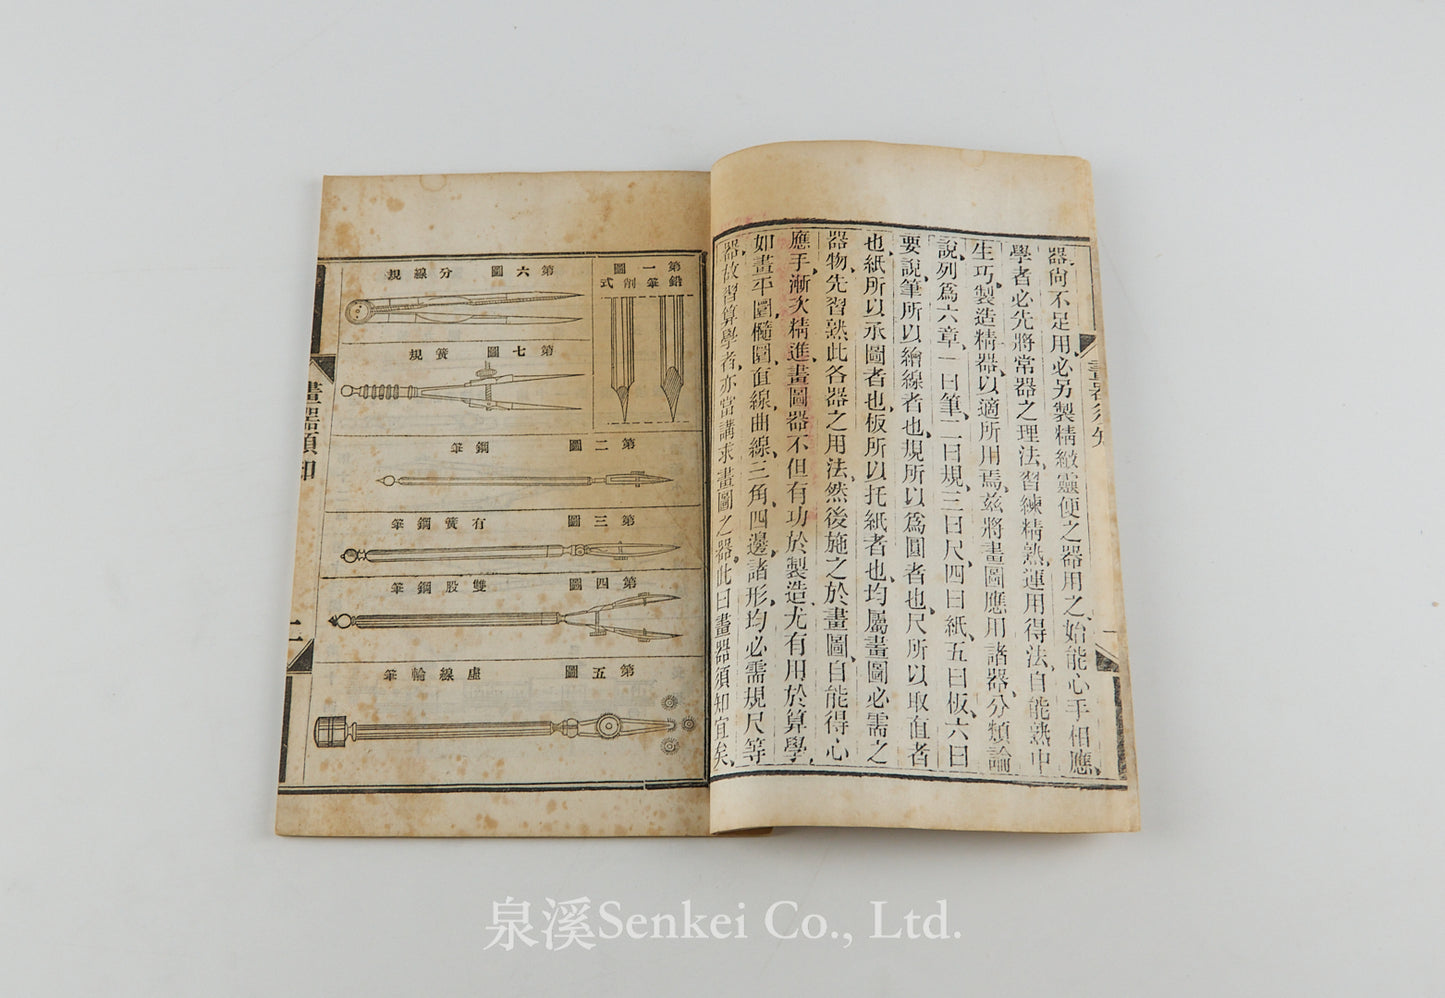 器尙不足用必另製精緻靈便之器用之始能心手相應
學者必先將常器之理法習練精熟運用得法自能熟中
生巧製造精器以適所用焉茲將畫圖應用諸器分類論
說列爲六章一曰筆二曰規三曰尺四曰紙五曰板六曰
要說筆所以繪線者也規所以爲圓者也尺所以取直者
也紙所以承圖者也板所以托紙者也均屬畫圖必需之
器物先習熟此各器之用法然後施之於畫圖自能得心
應手漸次精進畫圖器不但有功於製造尤有用於算學
如畫平圜橢圜直線曲線三角四邊諸形均必需規尺等
器故習算學者亦當講求畫圖之器此曰畫器須知宜矣
畫器須知
一
第一圖
鉛筆削式
第六圖 分線規
第七圖 簧規
第二圖 鋼筆
第三圖 有簧鋼筆
第四圖 雙股鋼筆
第五圖 虛線輪筆
畫器須知
二
泉溪Senkei Co., Ltd.